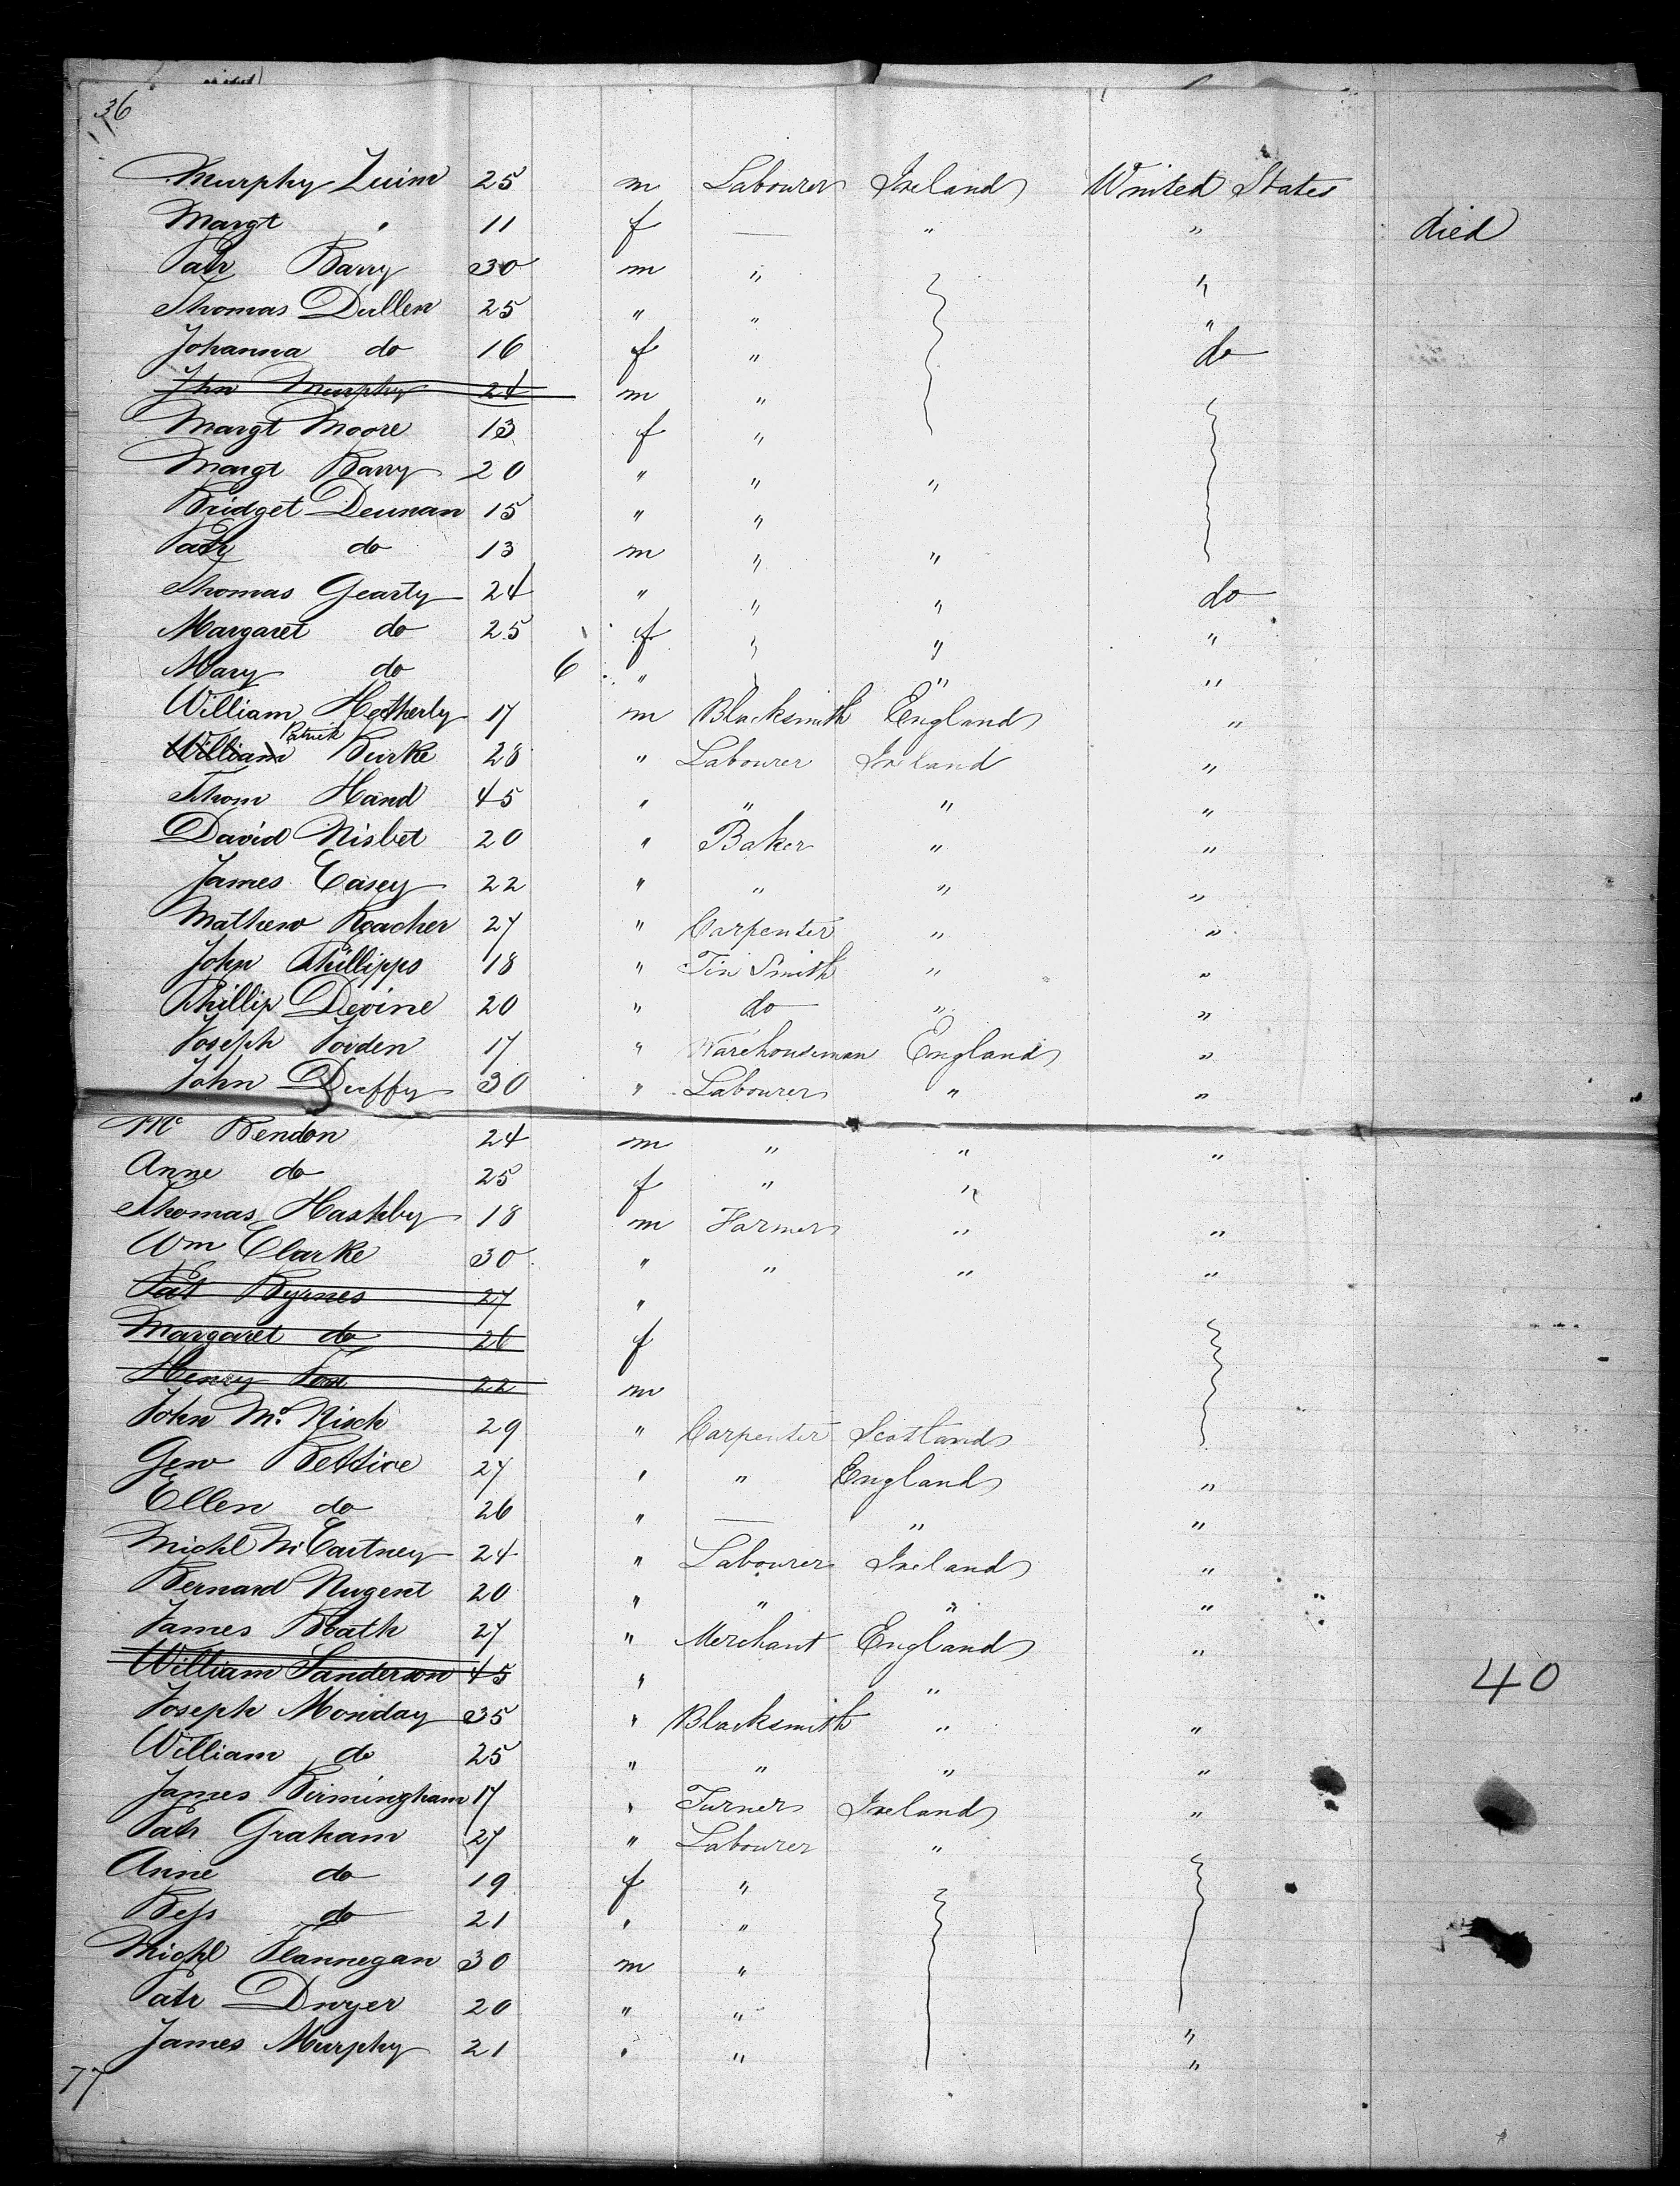 36
Murphy Quinn 25 m Labourer Ireland United States
Margt " 11 f — " " died
Patk Barry 30 m " "
Thomas Dullen 25 " " "
Johanna do 16 f " do
Jhn Murphy 24 m "
Margt Moore 13 f "
Margt Barry 20 " " "
Bridget Deunan 15 " "
Patk do 13 m " "
Thomas Gearty 24 " " " do
Margaret do 25 f " " "
Mary do 6 " " " "
William Hetherly 17 m Blacksmith England "
William Patrick Burke 28 " Labourer Ireland "
Thom Hand 45 " " " "
David Nisbet 20 " Baker " "
James Casey 22 " " " "
Mathew Roacher 27 " Carpenter " "
John Phillipps 18 " Tin Smith " "
Phillip Devine 20 " do " "
Joseph Joiden 17 " Warehouseman England "
John Duffy 30 " Labourer " "
Mc Bendon 24 m " " "
Anne do 25 f " "
Thomas Hashby 18 m Farmer " "
Wm Clarke 30 " " " "
Pat Byrnes 27 "
Margaret do 26 f
Henry 22 m
John Mc Kisch 29 " Carpenter Scotland
Geo 27 " " England "
Ellen do 26 " — " "
Michl McCartney 24 " Labourer Ireland "
Bernard Nugent 20 " " " "
James Bath 27 " Merchant England "
William Sanderson 45 " " 40
Joseph Monday 35 " Blacksmith " "
William do 25 " " " "
James Birmingham 17 " Turner Ireland "
Patk Graham 27 " Labourer "
Anne do 19 f "
Bess do 21 " "
Michl Flannegan 30 m "
Patk Dwyer 20 " " "
James Murphy 21 " " "
77